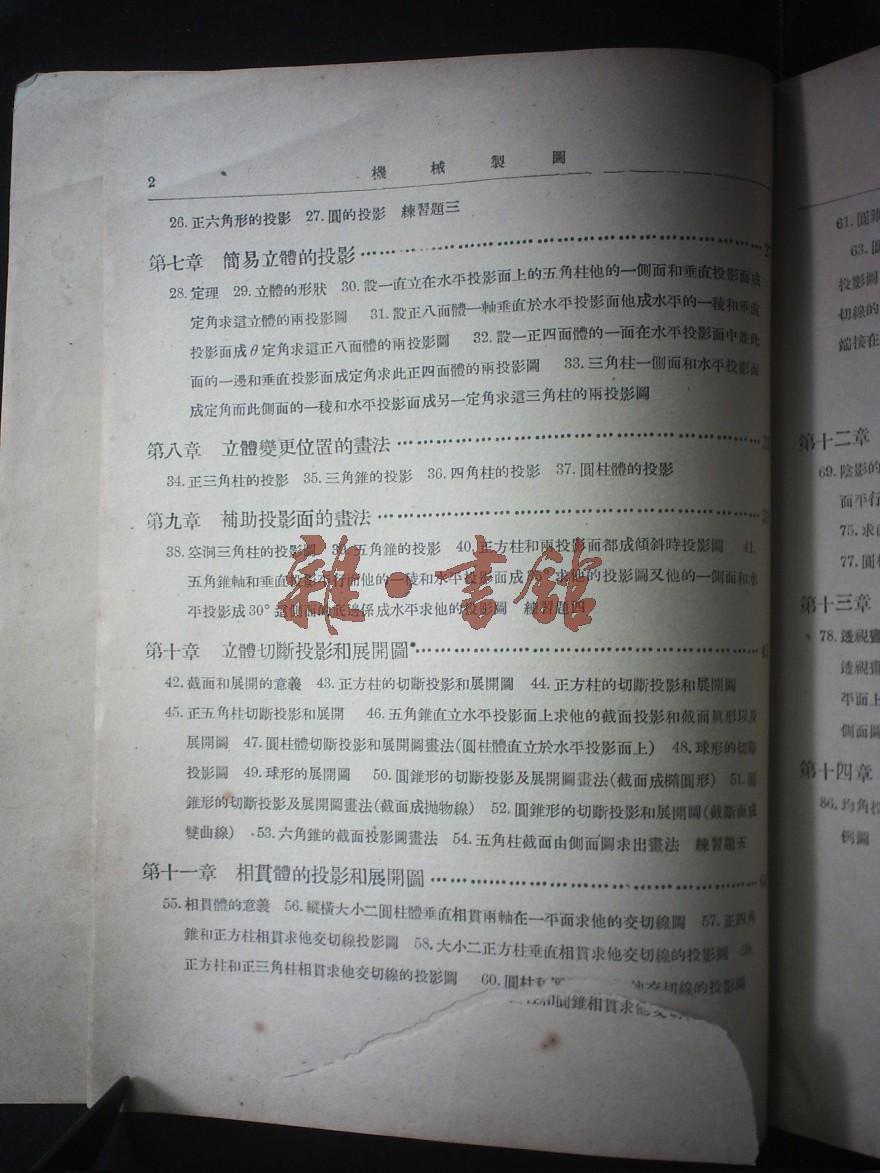 2 機械製圖
26.正六角形的投影 27.圓的投影 練習題三
第七章 簡易立體的投影
28.定理 29.立體的形狀 30.設一直立在水平投影面上的五角柱他的一側面和垂直投影面成
定角求這立體的兩投影圖 31.設正八面體一軸垂直於水平投影面他成水平的一稜和垂直
投影面成θ定角求這正八面體的兩投影圖 32.設一正四面體的一面在水平投影面中並此
面的一邊和垂直投影面成定角求此正四面體的兩投影圖 33.三角柱一側面和水平投影面
成定角而此側面的一稜和水平投影面成另一定角求這三角柱的兩投影圖
第八章 立體變更位置的畫法
34.正三角柱的投影 35.三角錐的投影 36.四角柱的投影 37.圓柱體的投影
第九章 補助投影面的畫法
38.空洞三角柱的投影圖 39.五角錐的投影 40.正方柱和兩投影面都成傾斜時投影圖 41.
五角錐軸和垂直投影平行而他的一稜和水平投影面成 求他的投影圖又他的一側面和水
平投影成30°這側面的底邊係成水平求他的投影圖 練習題四
雜·書館
第十章 立體切斷投影和展開圖
42.截面和展開的意義 43.正方柱的切斷投影和展開圖 44.正方柱的切斷投影和展開圖
45.正五角柱切斷投影和展開 46.五角錐直立水平投影面上求他的截面投影和截面眞形以及
展開圖 47.圓柱體切斷投影和展開圖畫法(圓柱體直立於水平投影面上) 48.球形的切斷
投影圖 49.球形的展開圖 50.圓錐形的切斷投影及展開圖畫法(截面成橢圓形) 51.圓
錐形的切斷投影及展開圖畫法(截面成拋物線) 52.圓錐形的切斷投影和展開圖(截斷面成
雙曲線) 53.六角錐的截面投影圖畫法 54.五角柱截面由側面圖求出畫法 練習題五
第十一章 相貫體的投影和展開圖
55.相貫體的意義 56.縱橫大小二圓柱體垂直相貫兩軸在一平面求他的交切線圖 57.正四角
錐和正方柱相貫求他交切線投影圖 58.大小二正方柱垂直相貫求他交切線的投影圖 59.
正方柱和正三角柱相貫求他交切線的投影圖 60.圓柱 他交切線的投影圖
和圓錐相貫求他交
61.圓錐
63.
投影圖
切線的
端接在
第十二章
69.陰影的
面平行
75.求
77.圓
第十三章
78.透視畫
透視畫
平面上
側面圖
第十四章
86.均角投
例圖